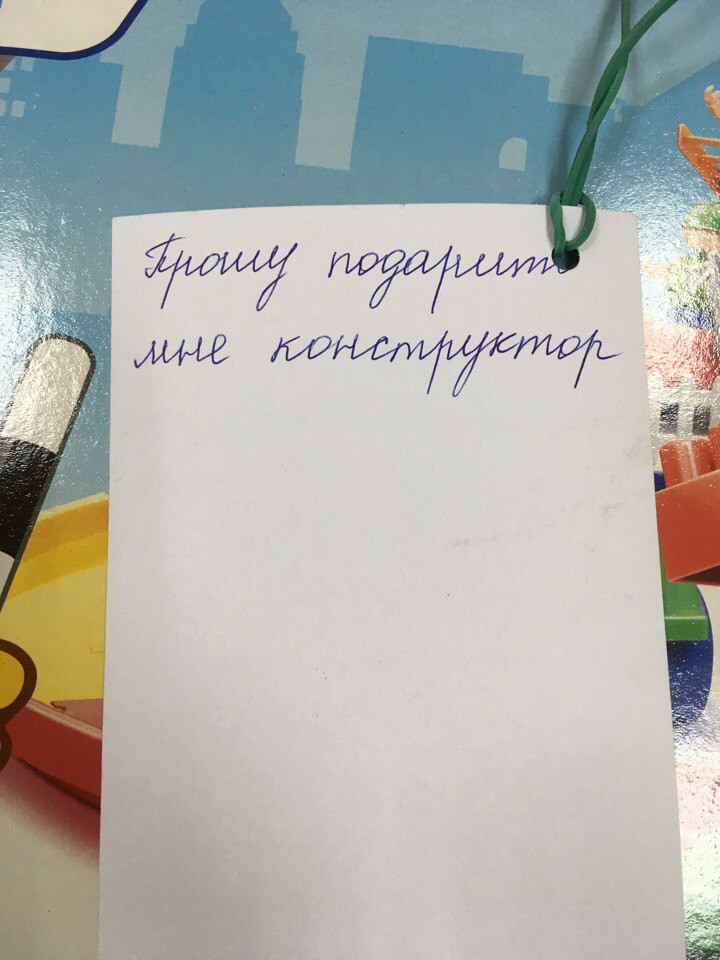 Прошу подарить
мне конструктор